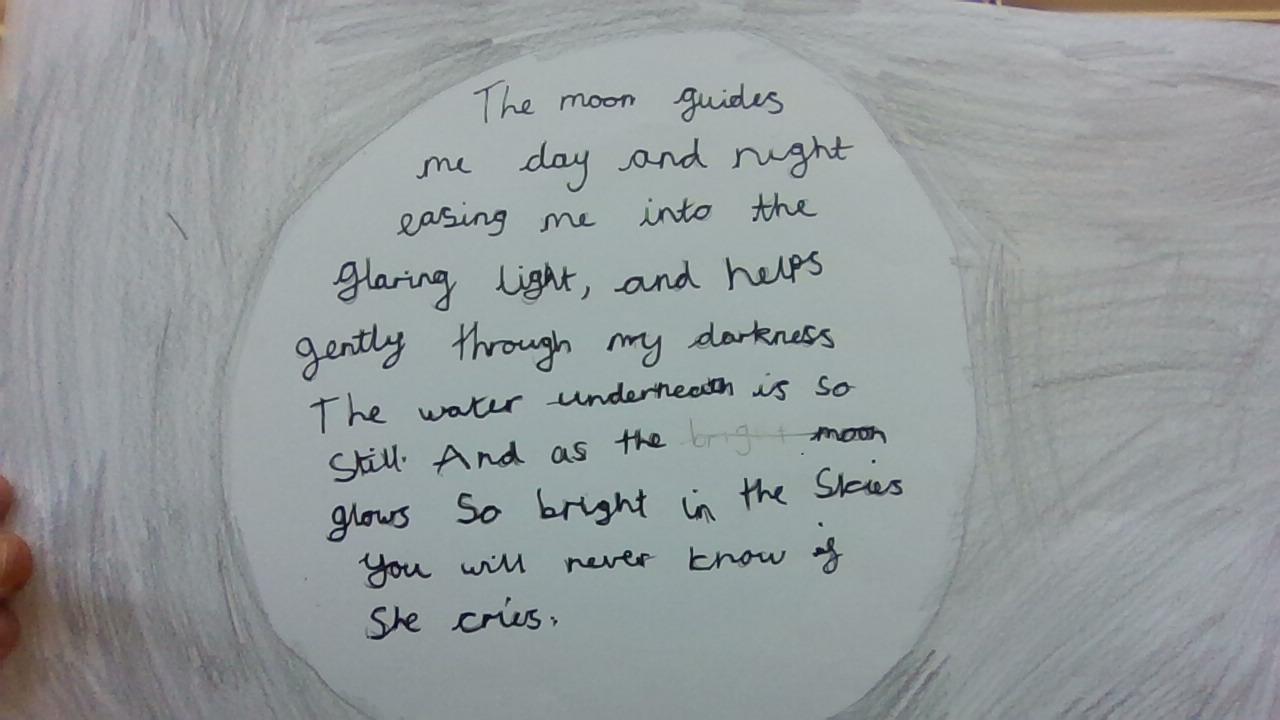 The moon guides
me day and night
easing me into the
glaring light, and helps
gently through my darkness
The water underneath is so
Still. And as the bright moon
glows So bright in the Skies
You will never know if
She cries.